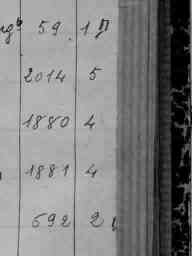 59. 1
2014 5
1880 4
1881 4
692 2